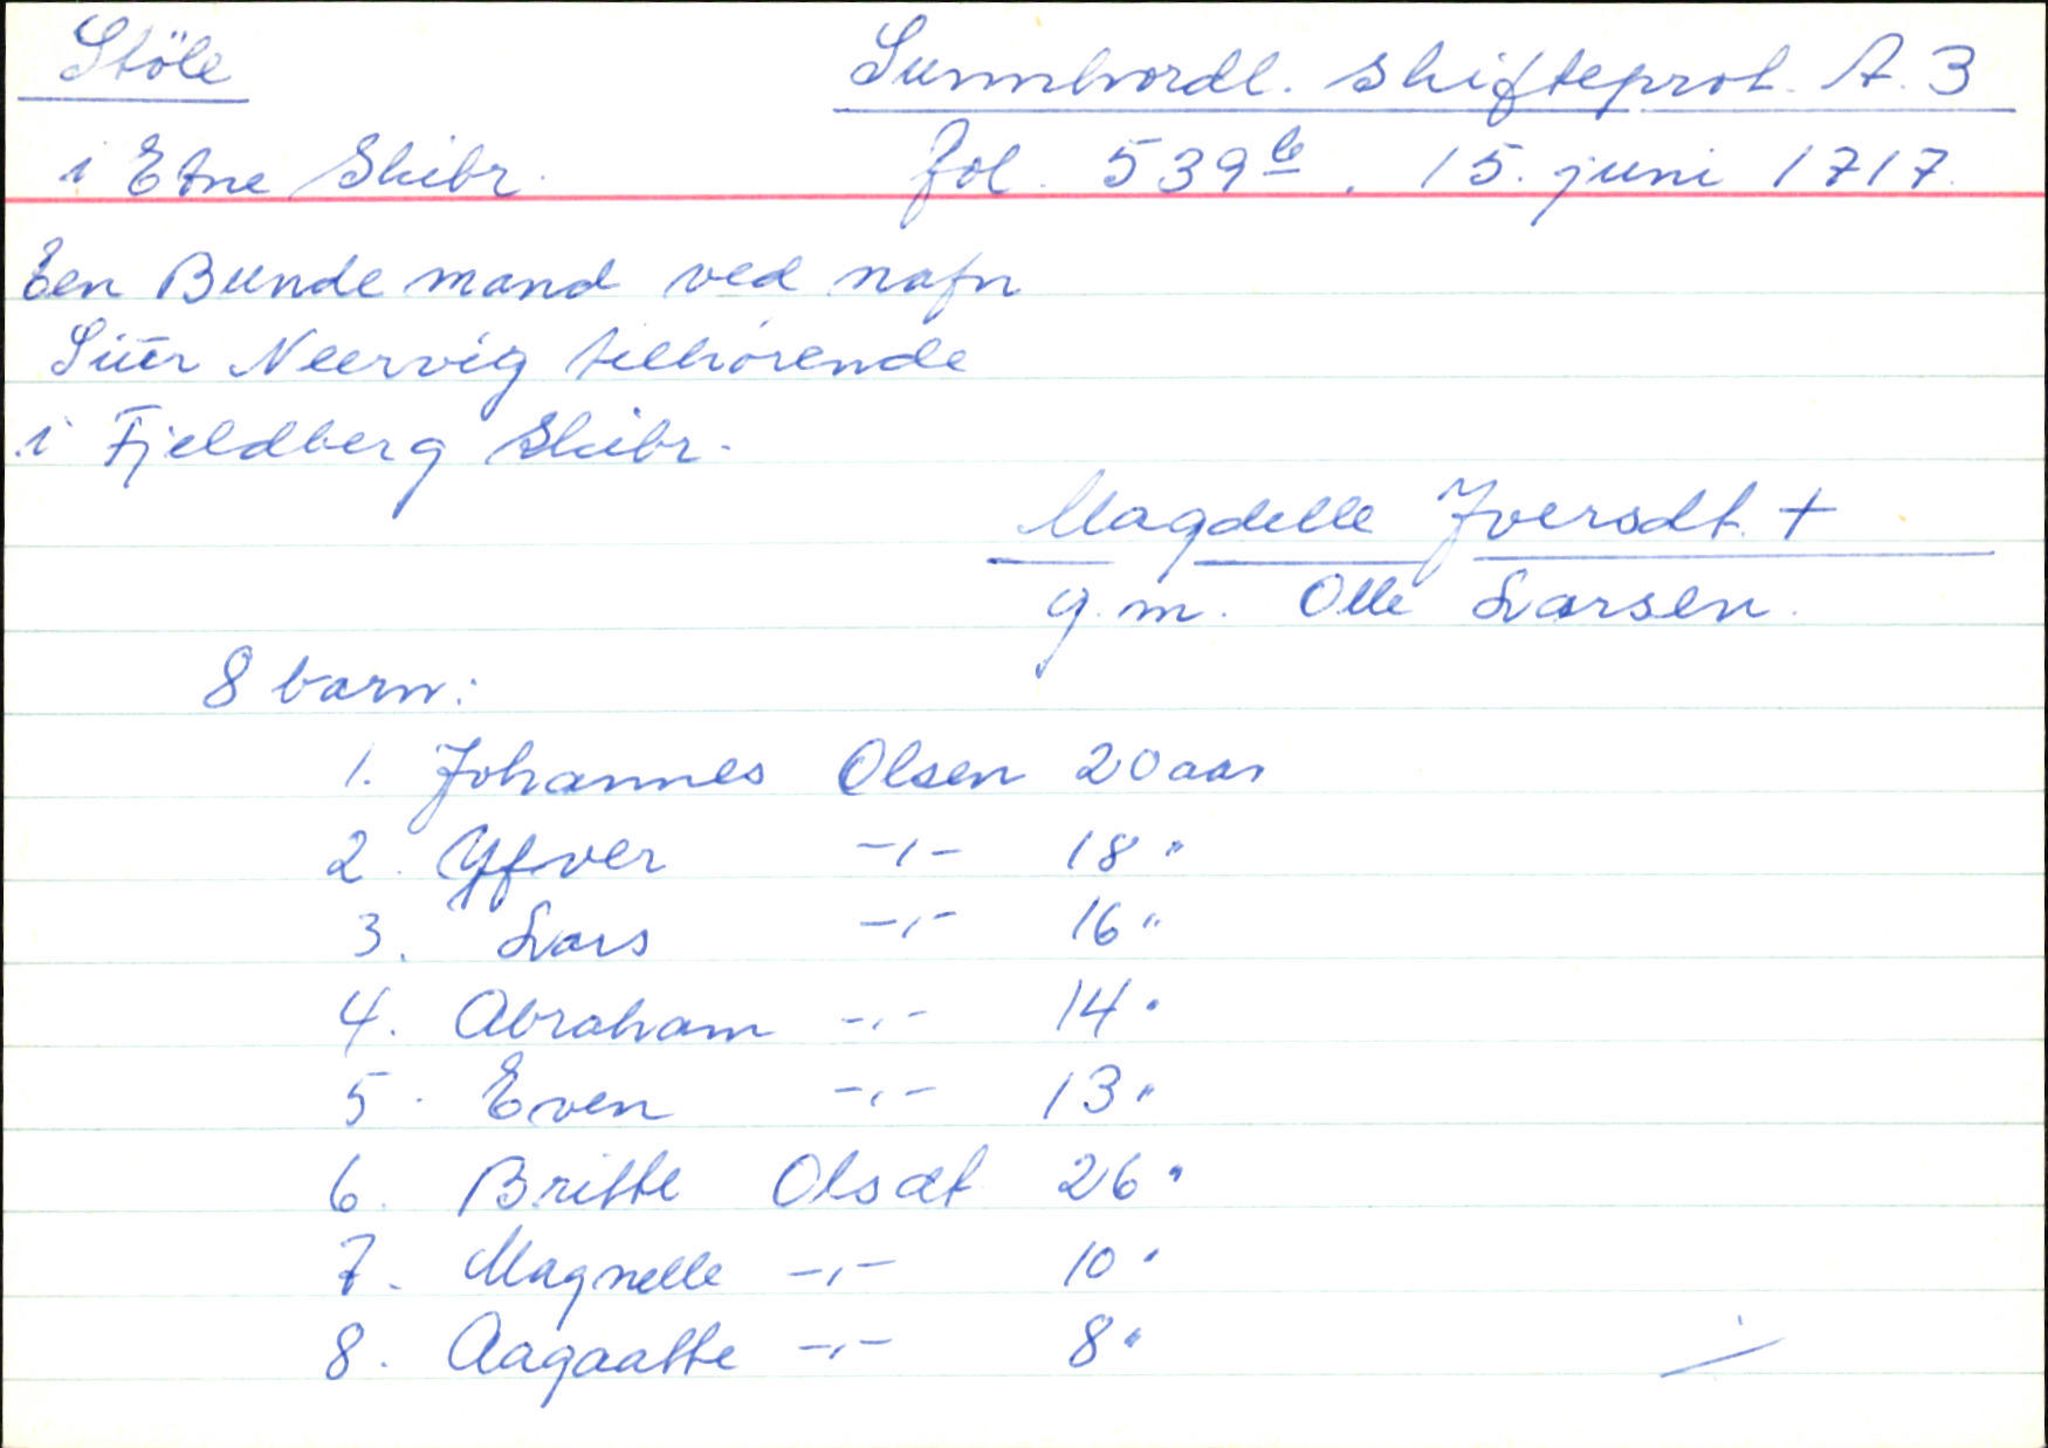 Stöle
Sunnhordl. skifteprot. A.3
i Etne Skibr.
fol. 539b. 15. juni 1717.
Een Bunde mand ved nafn
Siūr Neervig tilhörende
i Fjeldberg Skibr.
Magdelle Iversdt. +
g.m. Olle Larsen.
8 barn:
1. Johannes Olsen 20 aar
2. Yfver -,- 18 "
3. Lars -,- 16 "
4. Abraham -,- 14 "
5. Even -,- 13 "
6. Britte Olsdt 26 "
7. Magnelle -,- 10 "
8. Aagaatte -,- 8 "